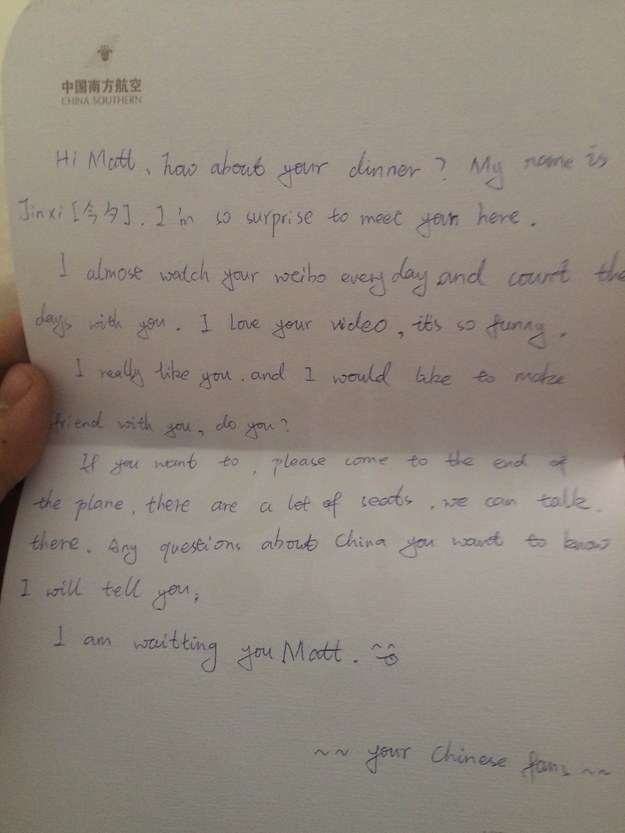 中国南方航空
CHINA SOUTHERN
Hi Matt, how about your dinner? My name is
Jinxi [今夕]. I'm so surprise to meet you here.
I almose watch your weibo everyday and count the
days with you. I love your video, it's so funny.
I really like you. and I would like to make
friend with you, do you?
If you want to, please come to the end of
the plane, there are a lot of seats, we can talk
there. Any questions about China you want to know
I will tell you;
I am waitting you Matt.
~~ your Chinese fans ~~